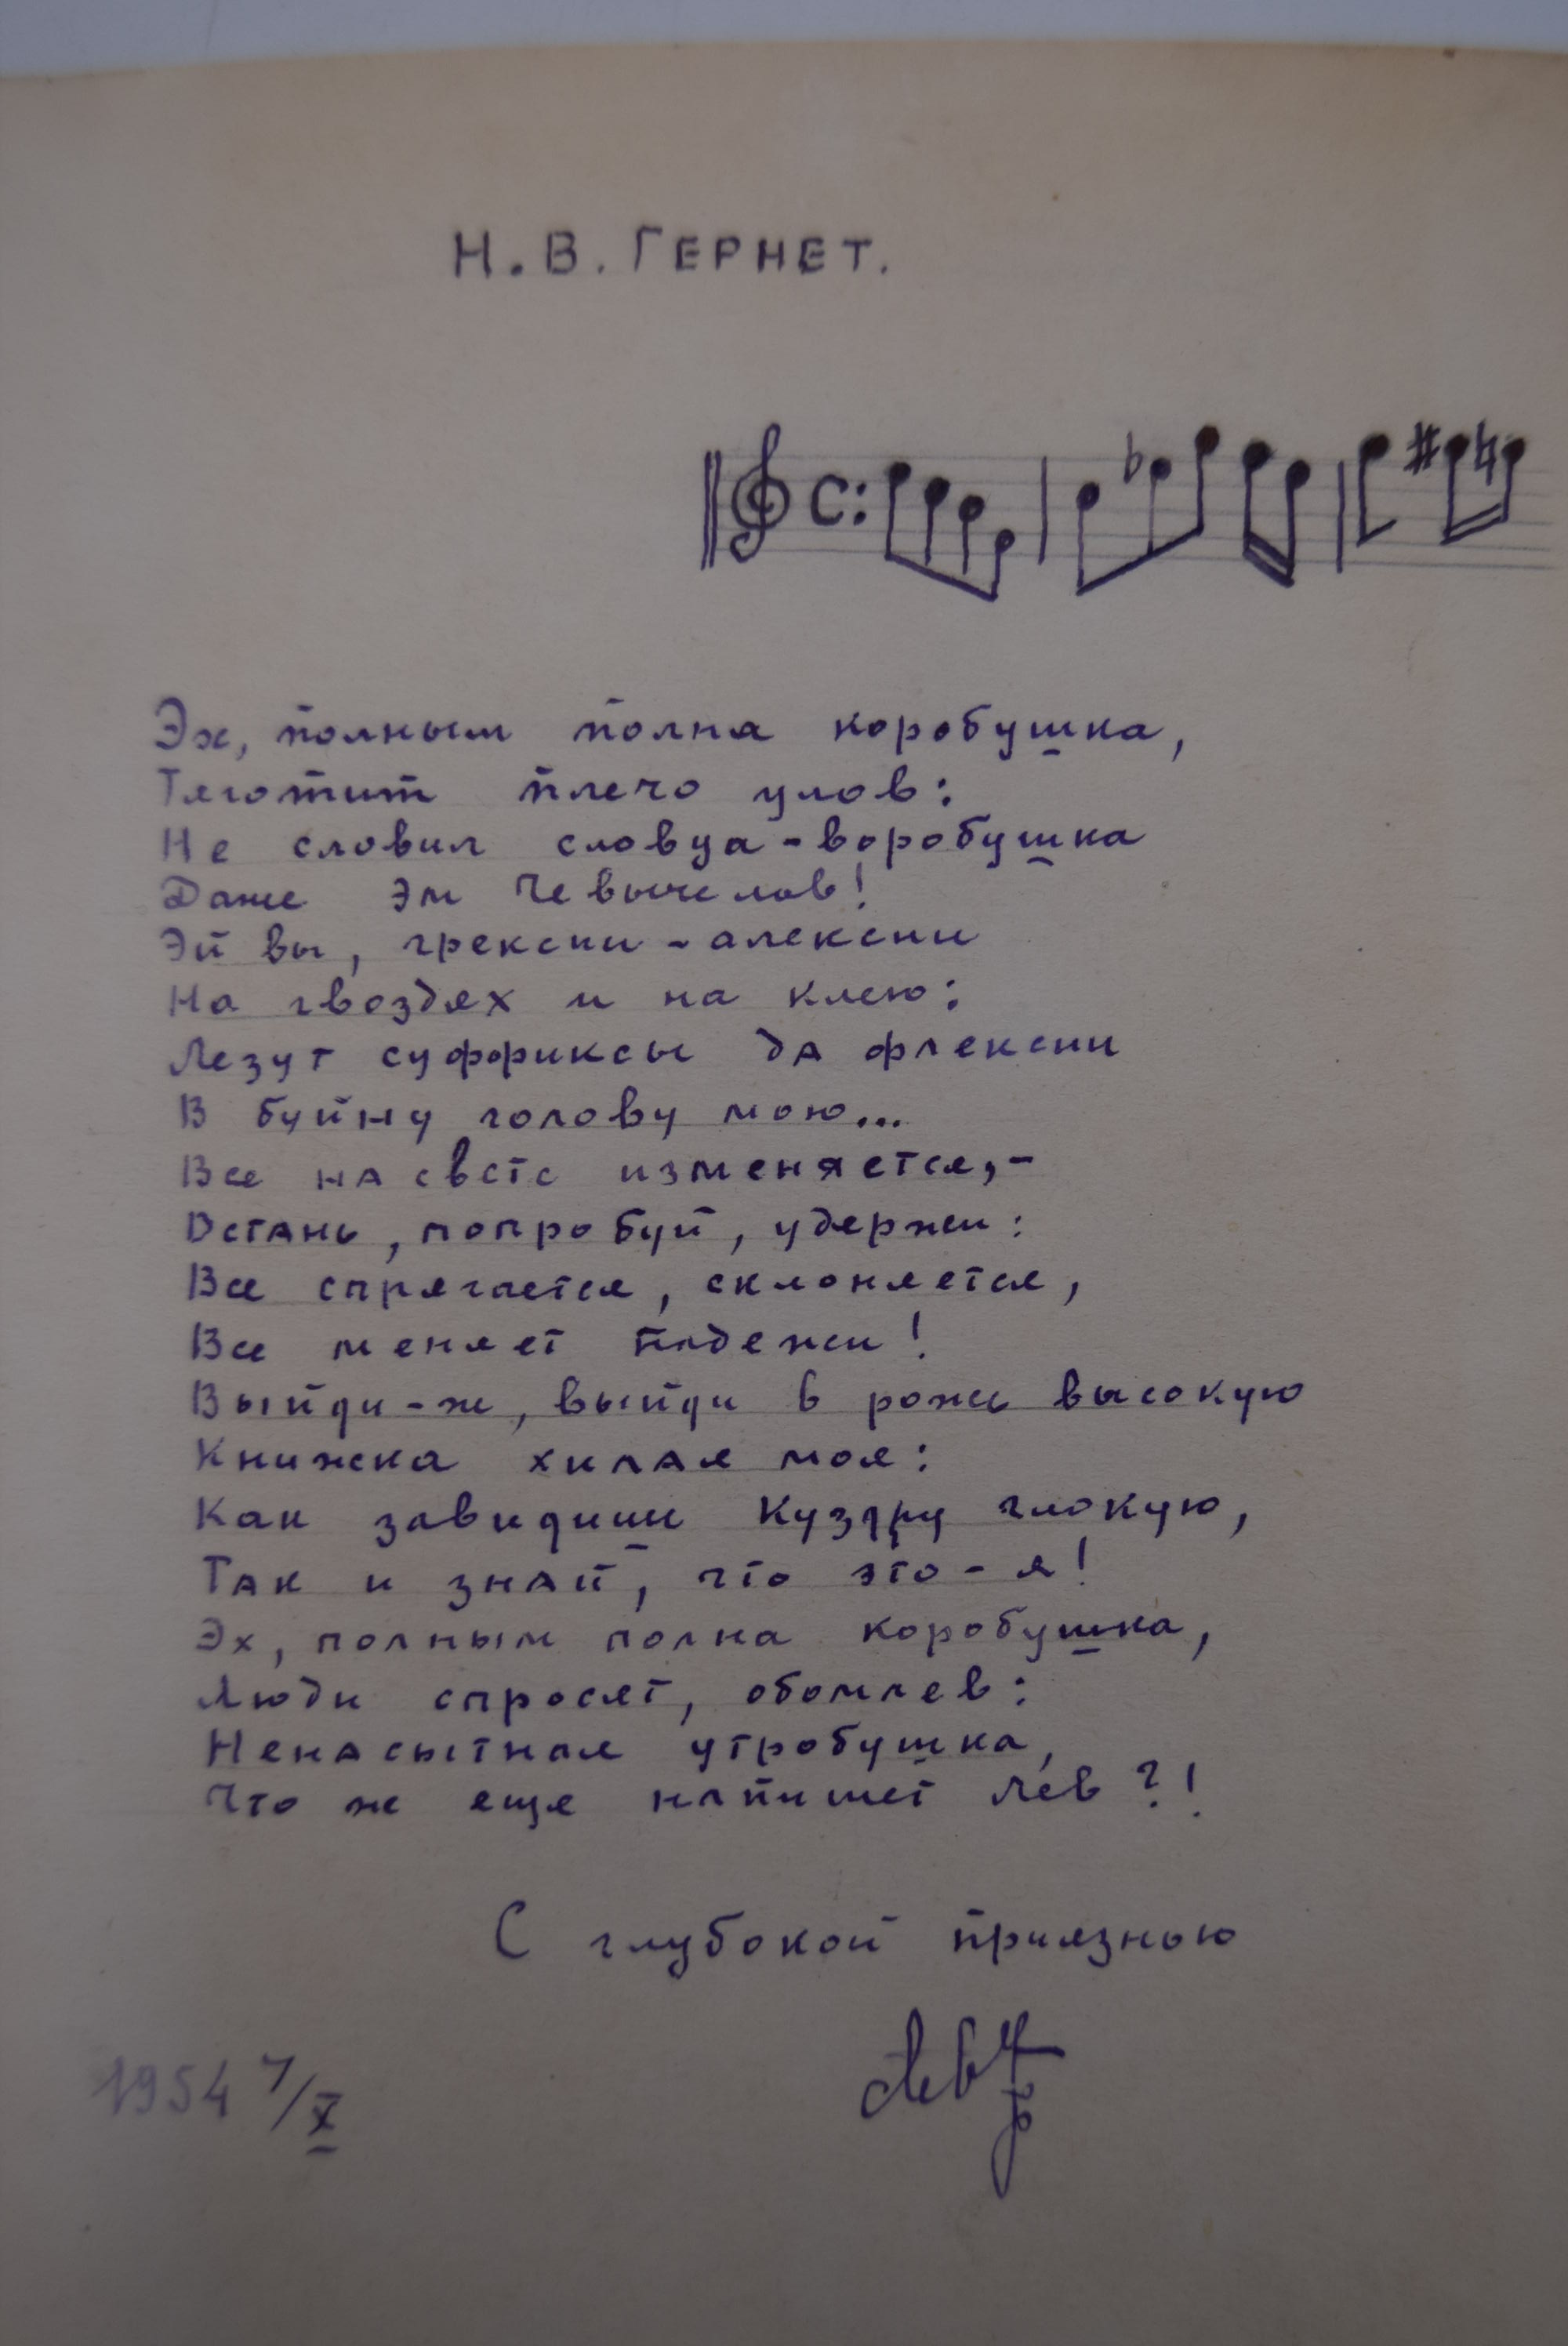 Н. В. ГЕРНЕТ.
C:
Эх, полным полна коробушка,
Тяготит плечо улов:
Не словил словца-воробушка
Даже Эм Чевычелов!
Эй вы, грексии-алексии
На гвоздях и на клею:
Лезут суффиксы да флексии
В буйну голову мою...
Все на свете изменяется,-
Встань, попробуй, удержи:
Все спрягается, склоняется,
Все меняет падежи!
Выйди-ж, выйди в рожь высокую
Книжка хилая моя:
Как завидишь Куздру глокую,
Так и знай, что это - я!
Эх, полным полна коробушка,
Люди спросят, обомлев:
Ненасытная утробушка,
Что же еще напишет Лев?!
С глубокой приязнью
Лев
1954 7/X